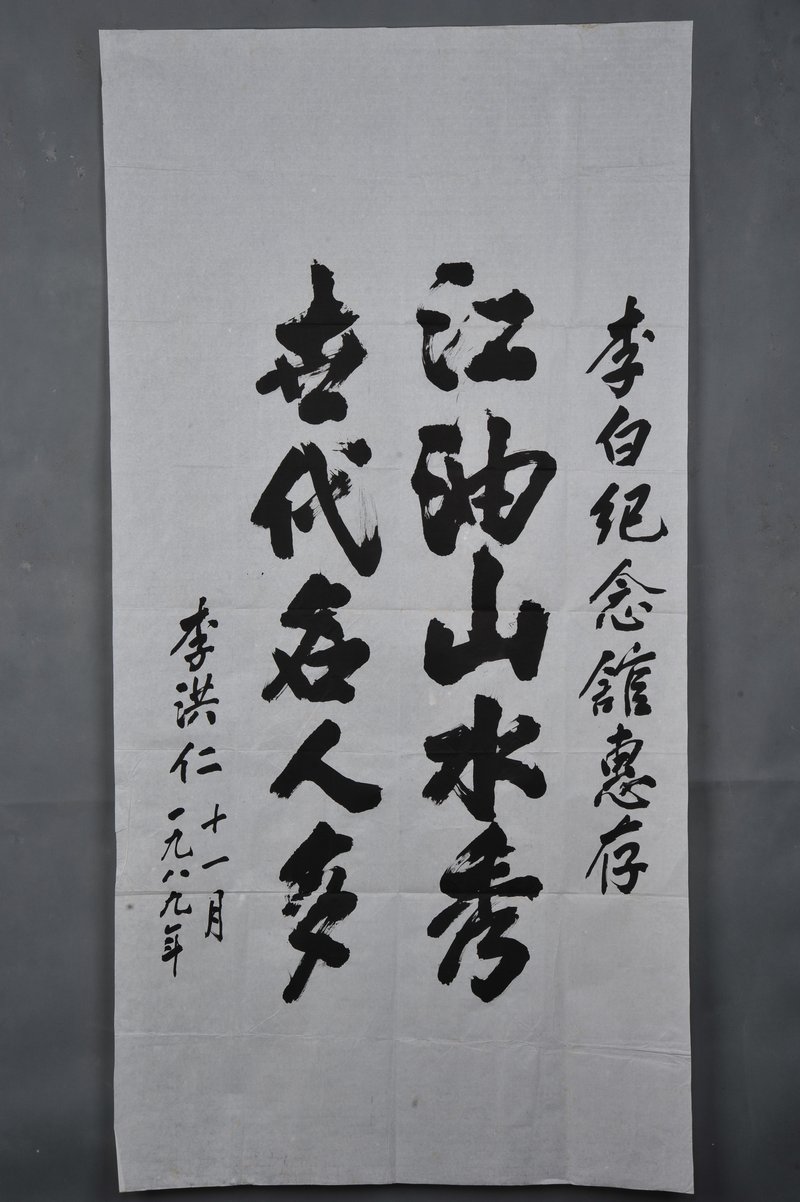 李白紀念舘惠存
江油山水秀
世代名人多
李洪仁
十一月
一九八九年